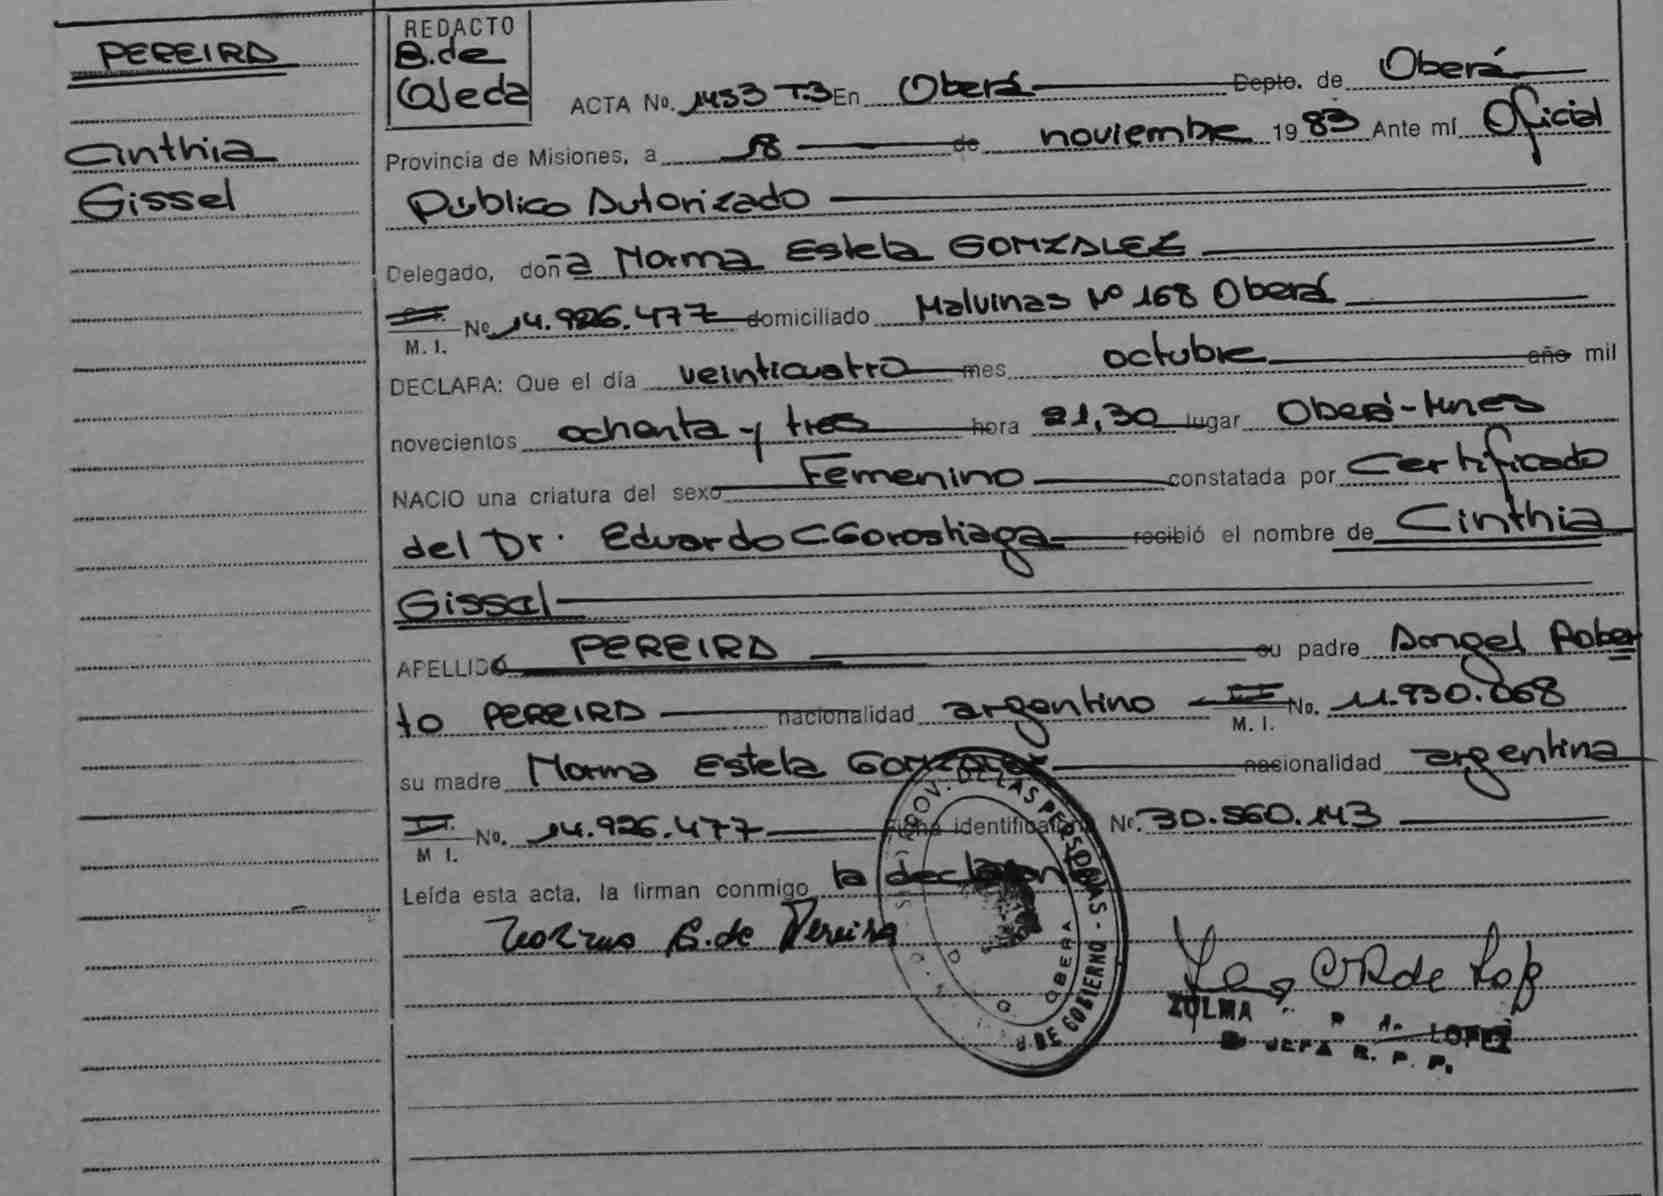 PEREIRA
Cinthia
Gissel
REDACTO
B.de
Ojeda
ACTA No. 1453 T.3 En Oberá Depto. de Oberá
Provincia de Misiones, a 18 de noviembre 1983 Ante mí Oficial
Público Autorizado
Delegado, doña Norma Estela GONZALEZ
M. I. No. 14.926.477 domiciliado Malvinas Nº 168 Oberá
DECLARA: Que el día veinticuatro mes octubre año mil
novecientos ochenta y tres hora 21,30 lugar Oberá-Mnes
NACIO una criatura del sexo Femenino constatada por Certificado
del Dr. Eduardo C Gorostiaga recibió el nombre de Cinthia
Gissel
APELLIDO PEREIRA su padre Angel Rober
to PEREIRA nacionalidad argentino M. I. No. 11.930.068
su madre Norma Estela GONZALEZ nacionalidad argentina
M I. No. 14.926.477 Ficha identificatoria Nr. 30.560.143
Leída esta acta, la firman conmigo la declarante
Norma G. de Pereira
PROV. DE LAS PERSONAS - 
OBERA
DE GOBIERNO
ZULMA R A. LOPEZ
JEFA R. P. P.